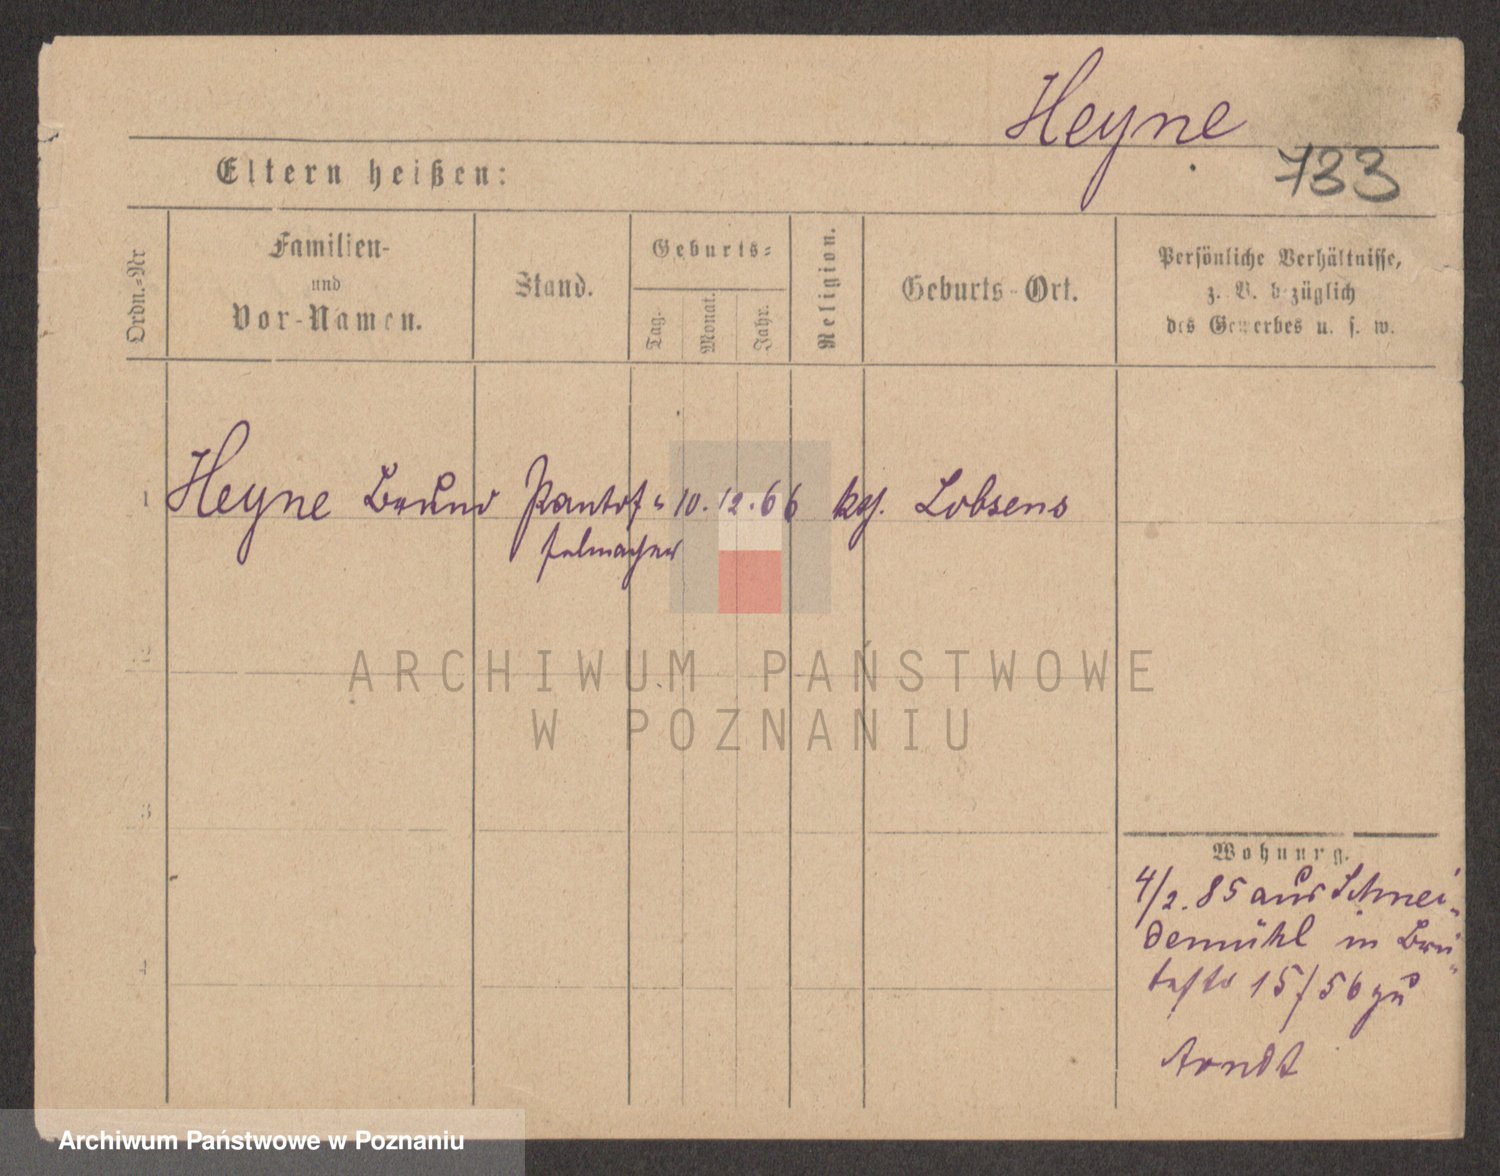 Heyne
733
Eltern heißen:
Ordn.-Nr
Familien-
und
Vor-Namen.
Stand.
Geburts-
Tag.
Monat.
Jahr.
Religion.
Geburts-Ort.
Persönliche Verhältnisse,
z. B. bezüglich
des Gewerbes u. s. w.
1 Heyne Bruno Pantof- 10. 12. 66 kg. Lobsens
felmacher
2
3
4
Wohnung.
4/2. 85 aus Schnei-
demühl in
15/56 zu
Arndt
ARCHIWUM PAŃSTWOWE
W POZNANIU
Archiwum Państwowe w Poznaniu